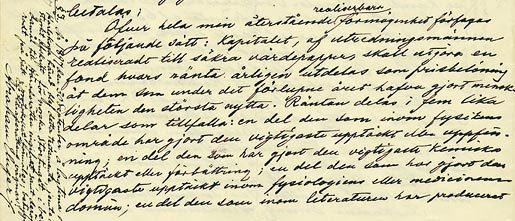 utdalas;
realiserbara
Öfver hela min återstående förmögenhet förfogas
på följande sätt: Kapitalet, af utredningsmännen
realiseradt till säkra värdepapper, skall utgöra en
fond hvars ränta årligen utdelas som prisbelöning
åt dem som under det förlupne året hafva gjort mensk-
ligheten den största nytta. Räntan delas i fem lika
delar som tillfalla: en del den som inom fysikens
område har gjort den vigtigaste upptäckt eller uppfin-
ning; en del den som har gjort den vigtigaste kemiska
upptäckt eller förbättring; en del den som har gjort den
vigtigaste upptäckt inom fysiologiens eller medicinens
domän; en del den som inom literaturen har producerat